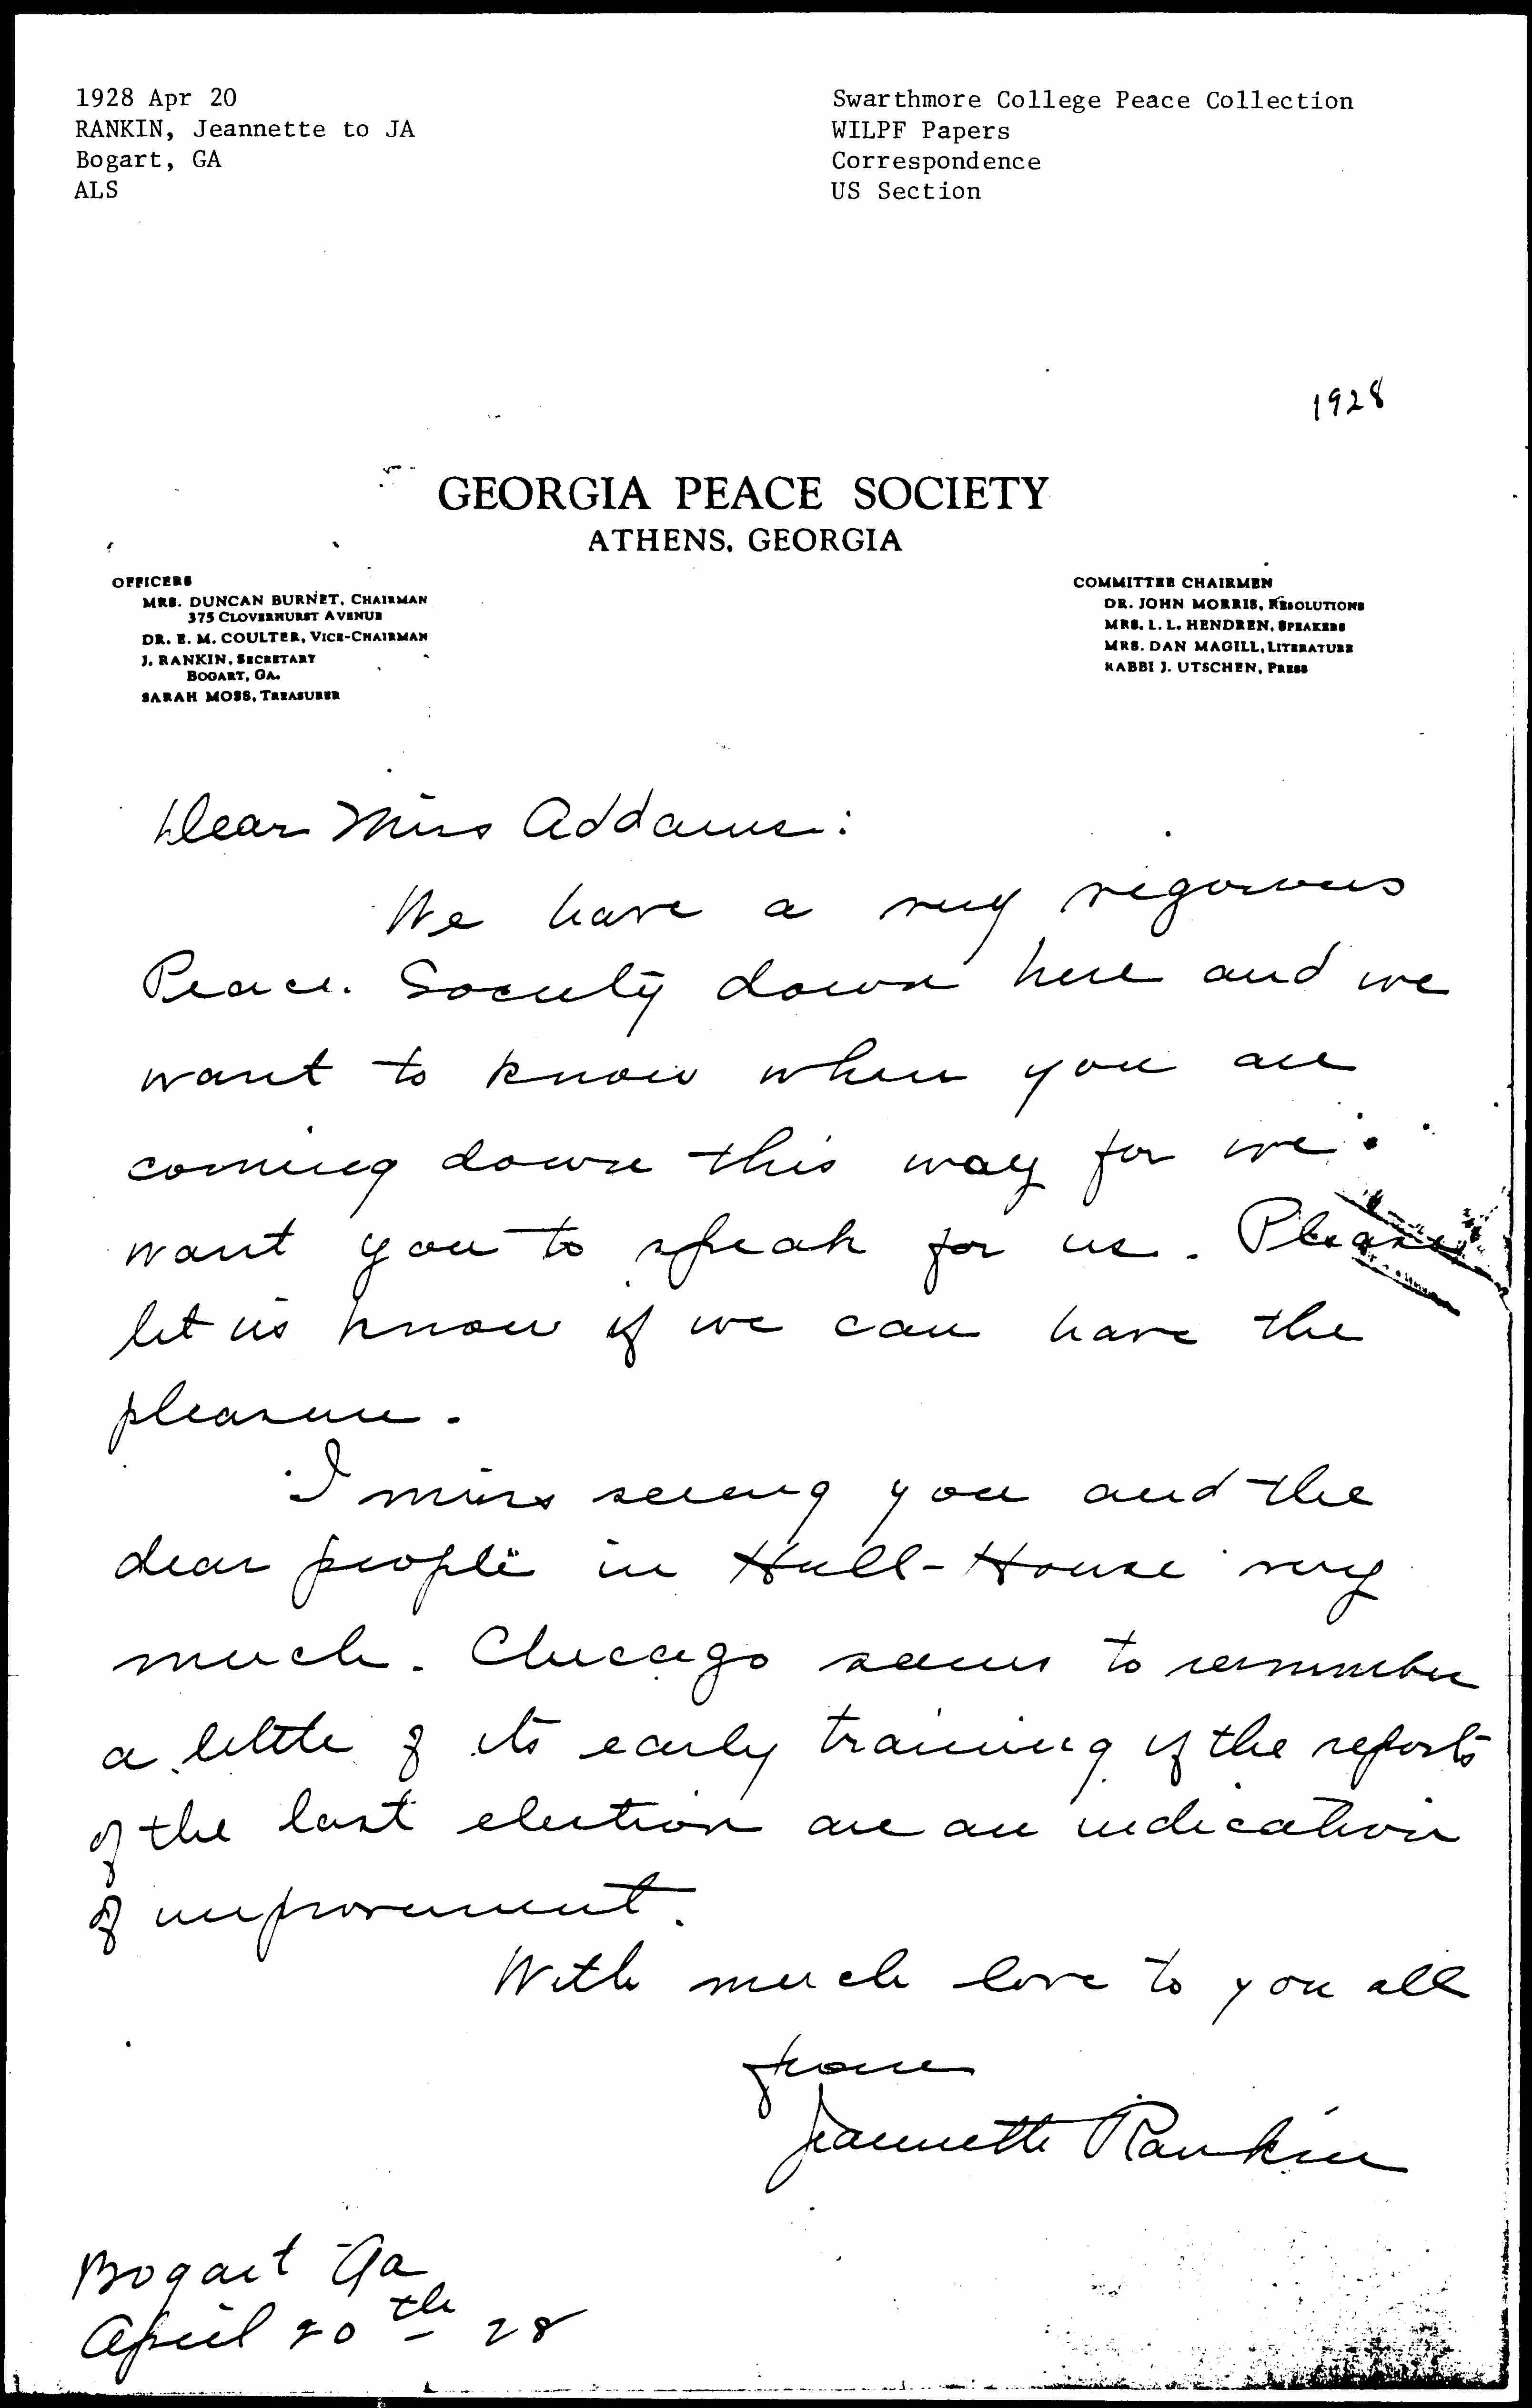 1928 Apr 20
RANKIN, Jeannette to JA
Bogart, GA
ALS
Swarthmore College Peace Collection
WILPF Papers
Correspondence
US Section
1928
GEORGIA PEACE SOCIETY
ATHENS, GEORGIA
OFFICERS
MRS. DUNCAN BURNET, CHAIRMAN
375 CLOVERHURST AVENUE
DR. E. M. COULTER, VICE-CHAIRMAN
J. RANKIN, SECRETARY
BOGART, GA.
SARAH MOSS, TREASURER
COMMITTEE CHAIRMEN
DR. JOHN MORRIS, RESOLUTIONS
MRS. L. L. HENDREN, SPEAKERS
MRS. DAN MAGILL, LITERATURE
RABBI J. UTSCHEN, PRESS
Dear Miss Addams:
We have a very vigorous
Peace Society down here and we
want to know when you are
coming down this way for we
want you to speak for us. Please
let us know if we can have the
pleasure.
I miss seeing you and the
dear people in Hull-House very
much. Chicago seems to remember
a little of its early training if the reports
of the last election are an indication
of improvement.
With much love to you all
from
Jeannette Rankin
Bogart Ga
April 20th 28